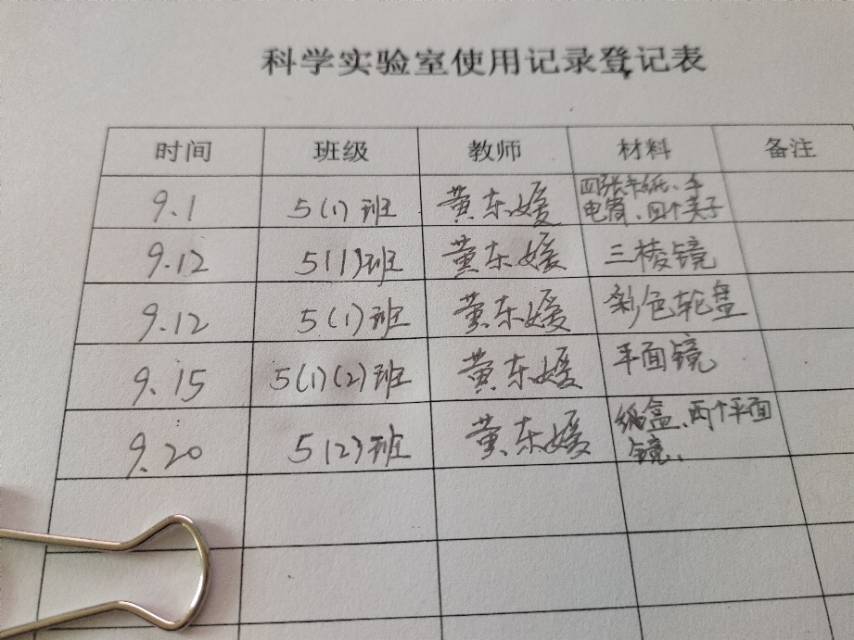 科学实验室使用记录登记表
时间 班级 教师 材料 备注
9.1 5(1)班 黄东媛 四张卡纸、手
电筒、四个夹子
9.12 5(1)班 黄东媛 三棱镜
9.12 5(1)班 黄东媛 彩色轮盘
9.15 5(1)(2)班 黄东媛 平面镜
9.20 5(2)班 黄东媛 纸盒、两个平面
镜、